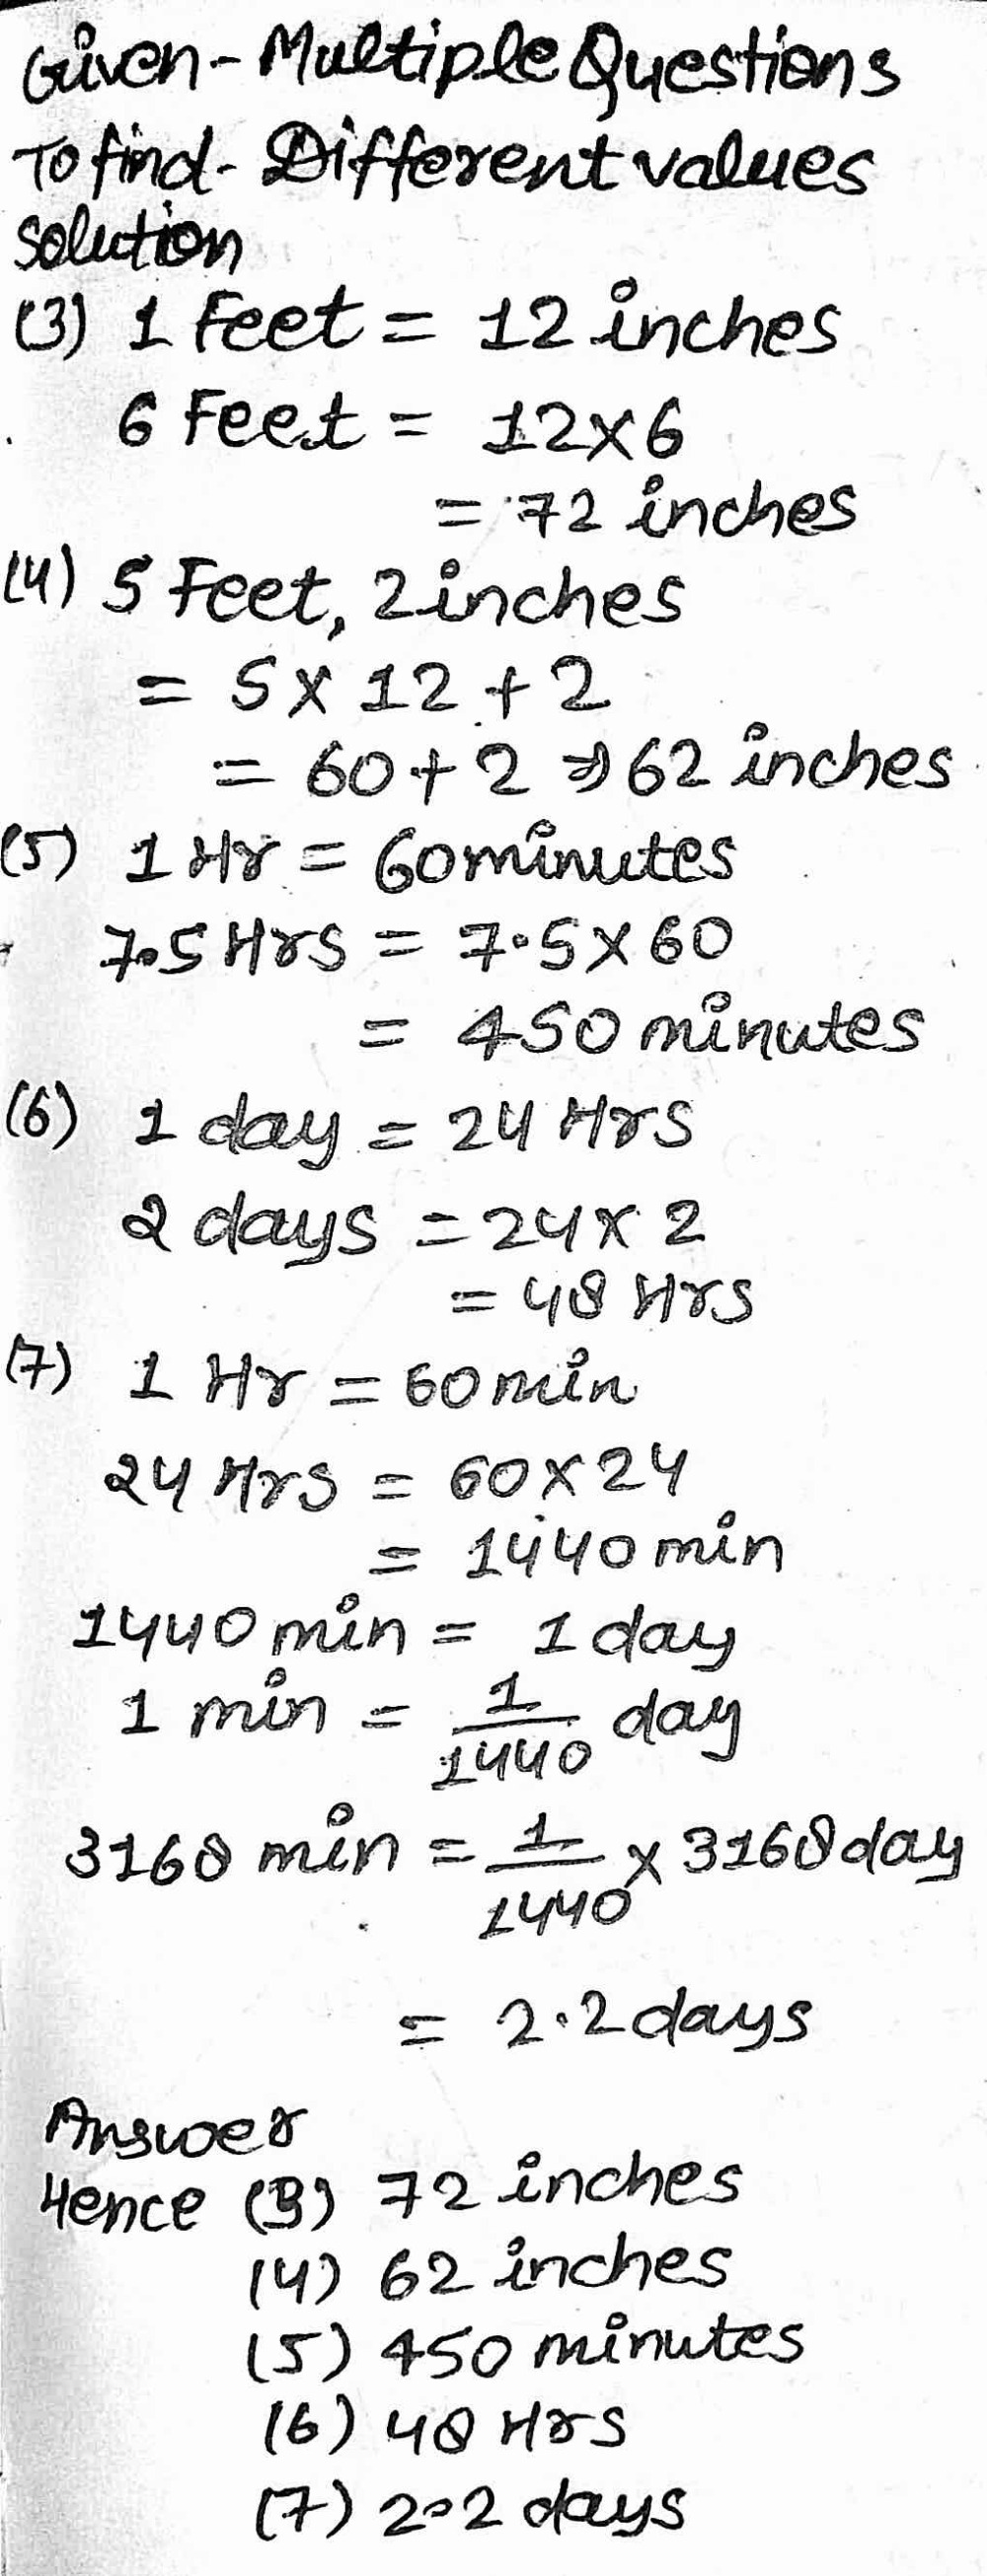 Given - Multiple Questions
To find - Different values
Solution
(3) 1 Feet = 12 inches
6 Feet = 12×6
= 72 inches
(4) 5 Feet, 2 inches
= 5 × 12 + 2
= 60 + 2 ⇒ 62 inches
(5) 1 Hr = 60 minutes
7.5 Hrs = 7.5 × 60
= 450 minutes
(6) 1 day = 24 Hrs
2 days = 24 × 2
= 48 Hrs
(7) 1 Hr = 60 min
24 Hrs = 60 × 24
= 1440 min
1440 min = 1 day
1 min = 1/1440 day
3168 min = 1/1440 × 3168 day
= 2.2 days
Answer
Hence (3) 72 inches
(4) 62 inches
(5) 450 minutes
(6) 48 Hrs
(7) 2.2 days